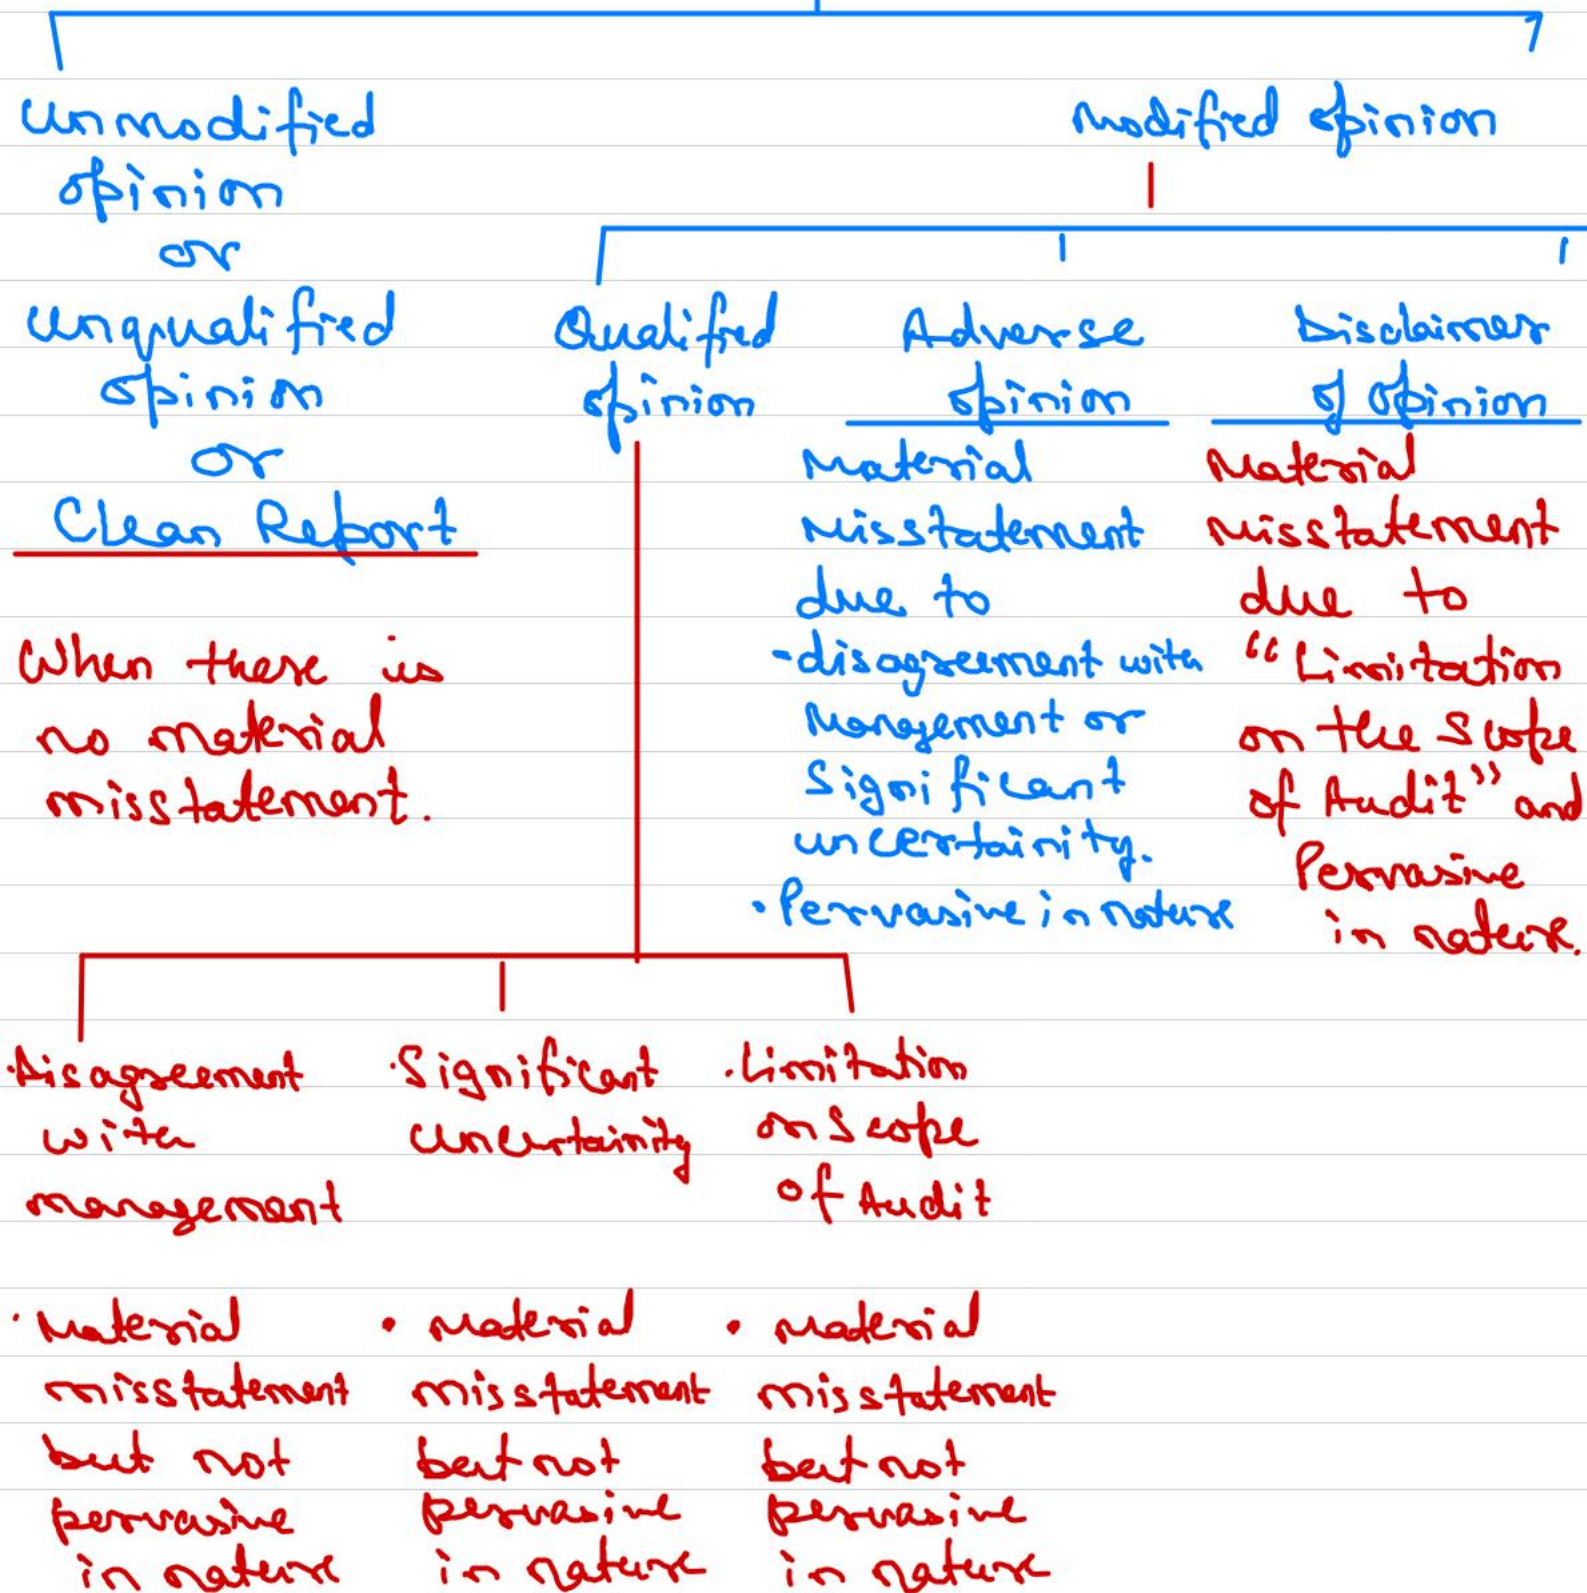 Unmodified
opinion
or
Unqualified
opinion
or
Clean Report
When there is
no material
misstatement.
Modified opinion
Qualified
opinion
Adverse
opinion
Material
Misstatement
due to
-disagreement with
Management or
Significant
uncertainity.
• Pervasive in nature
Disclaimer
of opinion
Material
Misstatement
due to
"Limitation
on the Scope
of Audit" and
Pervasive
in nature.
• Disagreement
with
management
• Material
misstatement
but not
pervasive
in nature
• Significant
uncertainity
• Material
misstatement
but not
pervasive
in nature
• Limitation
on Scope
of Audit
• Material
misstatement
but not
pervasive
in nature